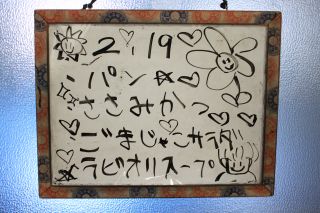 2,19
パン
ささみかつ
ごまじゃこサラダ
ラビオリスープ